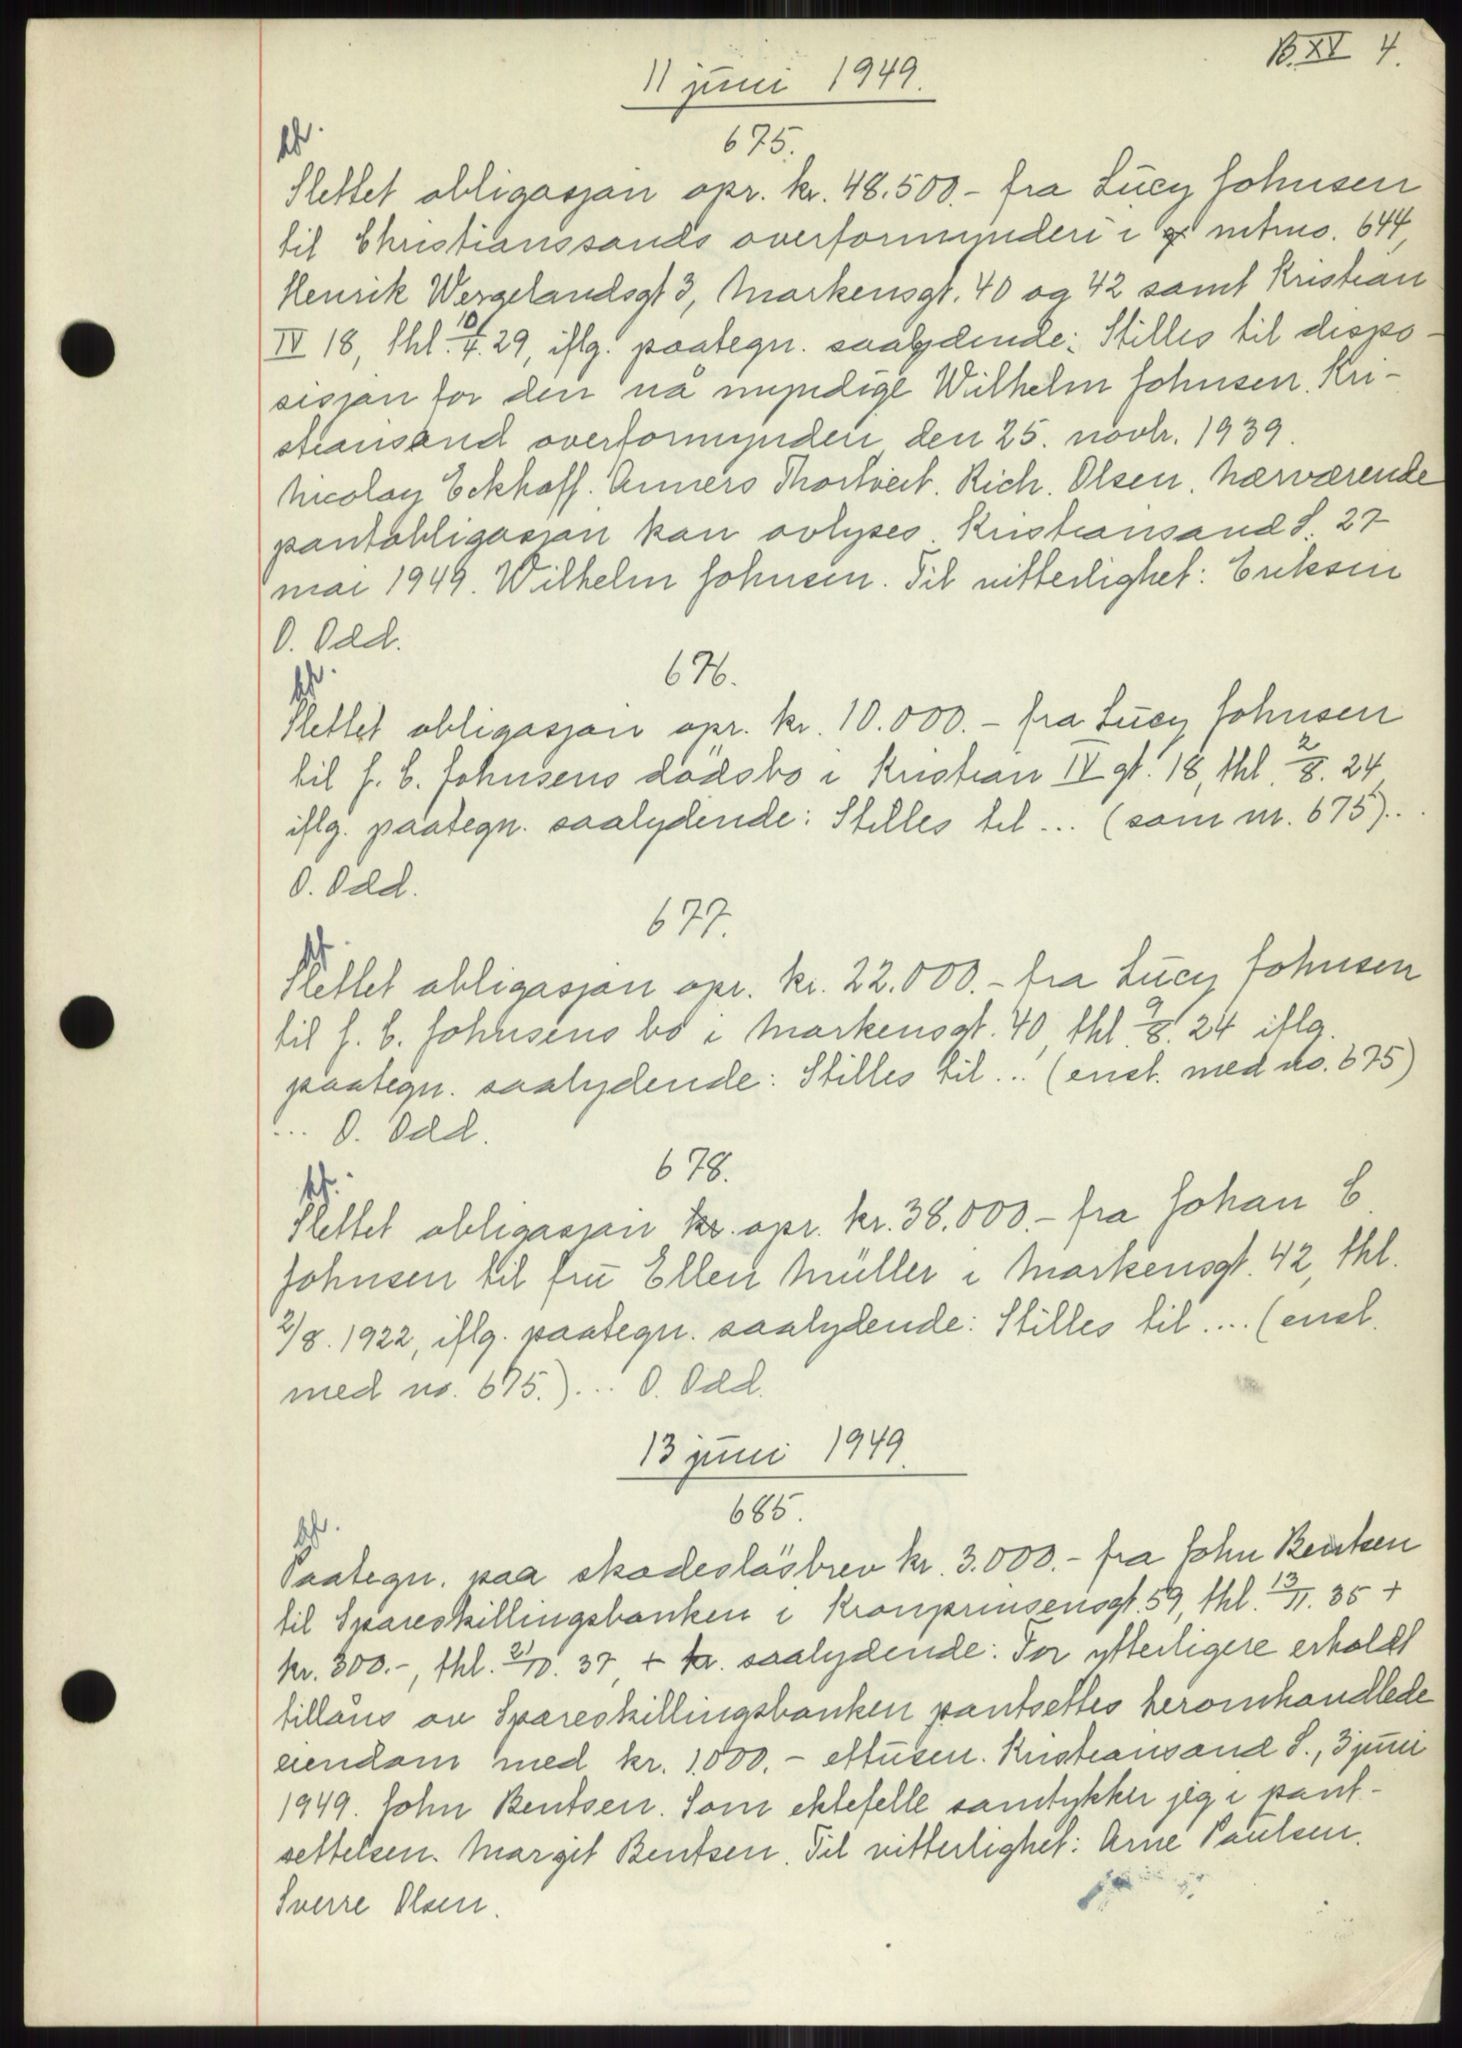 B. XV 4.
11 juni 1949.
675.
Slettet obligasjon opr. kr. 48.500.- fra Lucy Johnsen
til Christianssands overformynderi i mtrno. 644,
Henrik Wergelandsgt 3, Markensgt. 40 og 42 samt Kristian
IV 18, thl. 10/4. 29, iflg. paategn. saalydende: Stilles til dispo-
sisjon for den nå myndige Wilhelm Johnsen. Kri-
stiansand overformynderi den 25. novbr. 1939.
Nicolay Eckhoff. Anners Thortveit. Rich. Olsen. Nærværende
pantobligasjon kan avlyses. Kristiansand S. 27
mai 1949. Wilhelm Johnsen. Til vitterlighet: Eriksen
O. Odd.
676.
Slettet obligasjon opr. kr. 10.000.- fra Lucy Johnsen
til J. C. Johnsens dödsbo i Kristian IV gt. 18, thl. 2/8. 24
iflg. paategn. saalydende: Stilles til ... (som nr. 675)...
O. Odd.
677.
Slettet obligasjon opr. kr. 22.000.- fra Lucy Johnsen
til J. C. Johnsens bo i Markensgt. 40, thl. 9/8. 24 iflg.
paategn. saalydende: Stilles til ... (enst. med no. 675)
... O. Odd.
678.
Slettet obligasjon kr. opr. kr. 38.000.- fra Johan C.
Johnsen til fru Ellen Müller i Markensgt. 42, thl.
2/8. 1922, iflg. paategn. saalydende: Stilles til .... (enst.
med no. 675.) ... O. Odd.
13 juni 1949.
685.
Paategn. paa skadeslösbrev kr. 3.000.- fra John Bentsen
til Spareskillingsbanken i Kronprinsensgt. 59, thl. 13/11. 35 +
kr. 300.-, thl. 21/10. 37, + kr. saalydende: For ytterligere erholdt
tillåns av Spareskillingsbanken pantsettes heromhandlede
eiendom med kr. 1.000.- ettusen. Kristiansand S., 3 juni
1949. John Bentsen. Som ektefelle samtykker jeg i pant-
settelsen. Margit Bentsen. Til vitterlighet: Arne Paulsen.
Sverre Olsen.